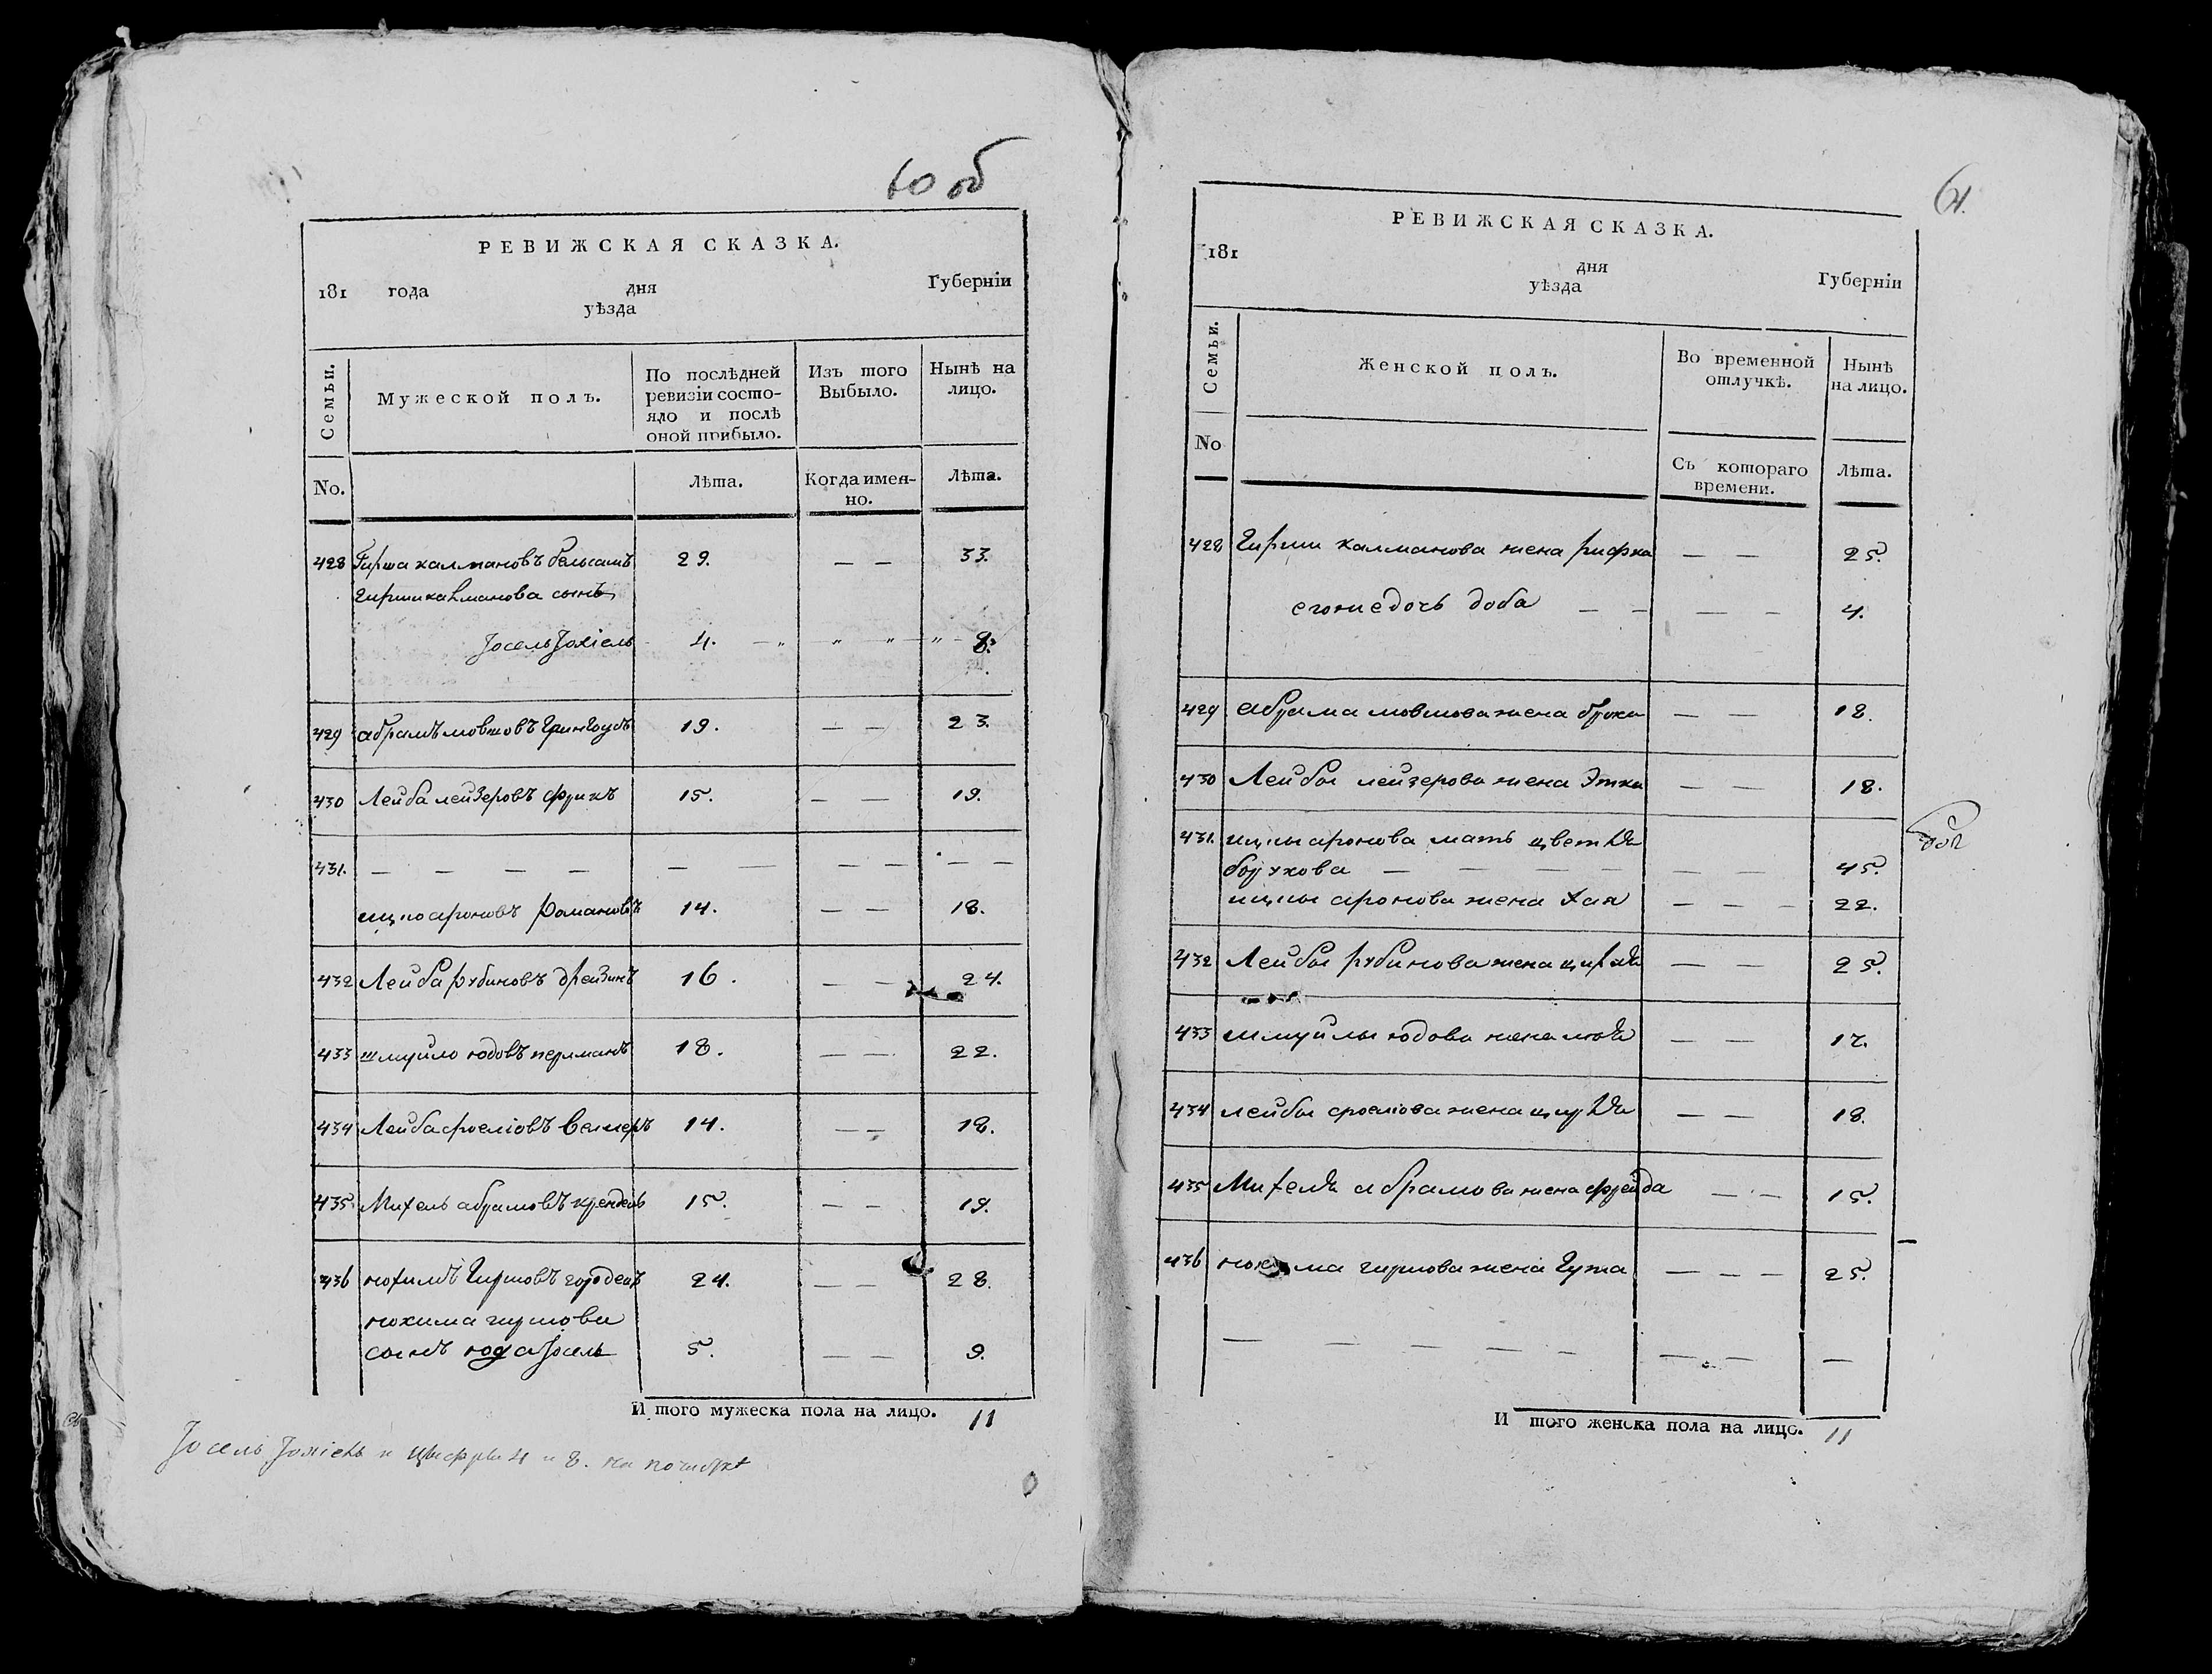 60 об
РЕВИЖСКАЯ СКАЗКА.
181 года дня Губерніи
уѣзда
Семьи. Мужеской полъ. По послѣдней ревизіи состо- яло и послѣ оной прибыло. Изъ того Выбыло. Нынѣ на лицо.
No. Лѣта. Когда имен- но. Лѣта.
428 Гирша калмановъ 29. — — 33.
гирши калманова сынъ
Іосель Іохіель 4. — „ „ „ — „ 8.
429 абрамъ мовшовъ 19. — — 23.
430 Лейба лейзеровъ фрукъ 15. — — 19.
431. — — — — — — — — — —
ицко ароновъ Романовъ 14. — — 18.
432 Лейба рубиновъ Дрейзинъ 16. — — 24.
433 шмуйло юдовъ перлманъ 18. — — 22.
434 Лейба сроеліовъ 14. — — 18.
435. Михель абрамовъ крендель 15. — — 19.
436 нохимъ Гиршовъ 24. — — 28.
нохима гиршова
сынъ Іосель 5. — — 9.
И того мужеска пола на лицо. 11
Іосель Іохіель и цифры 4 и 8. на
61.
РЕВИЖСКАЯ СКАЗКА.
181 дня Губерніи
уѣзда
Семьи. Женской полъ. Во временной отлучкѣ. Нынѣ на лицо.
No Съ котораго времени. Лѣта.
428 Гирши Калманова жена рифка — — 25.
егоже дочь доба — — — — 4.
429 абрама мовшова жена — — 18.
430 Лейбы лейзерова жена Этка — — 18.
431. ицки аронова мать цветля
борухова — — — — — — 45.
ицки аронова жена хая — — — 22.
432 Лейбы рубинова жена — — 25.
433 шмуйлы юдова жена — — 17.
434 лейбы сроеліова жена — — 18.
435 Михеля абрамова жена фрейда — — 15.
436 нохима гиршова жена Гута — — — 25.
— — — — — — —
И того женска пола на лицо. 11